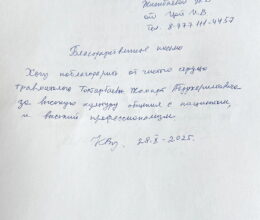 от Цой И.В
тел. 8-777 111-4457
Благодарственное письмо
Хочу поблагодарить от чистого сердца
травматолога Жомарта
за высокую культуру общения с пациентами,
и высокий профессионализм.
28.X-2025.